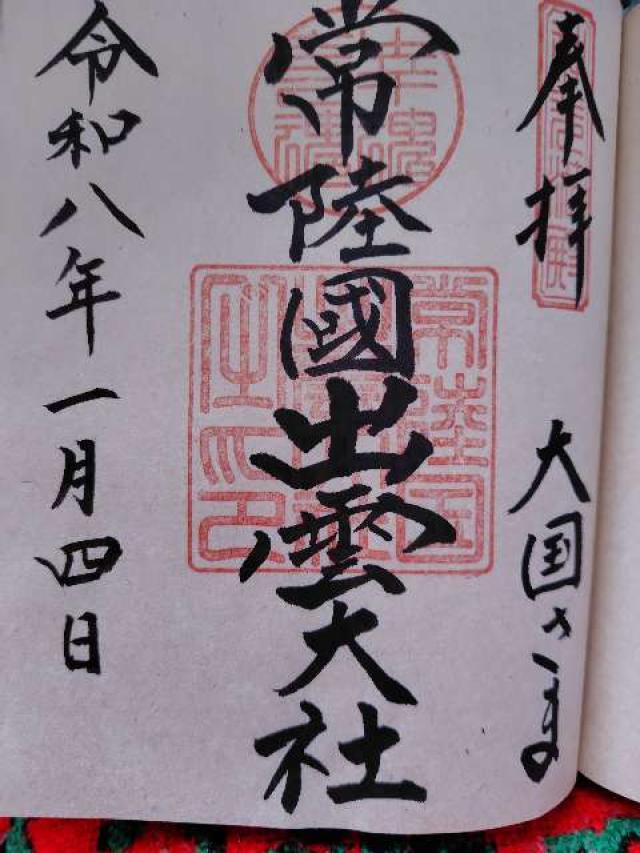 奉拝
大国さま
常陸國出雲大社
令和八年一月四日